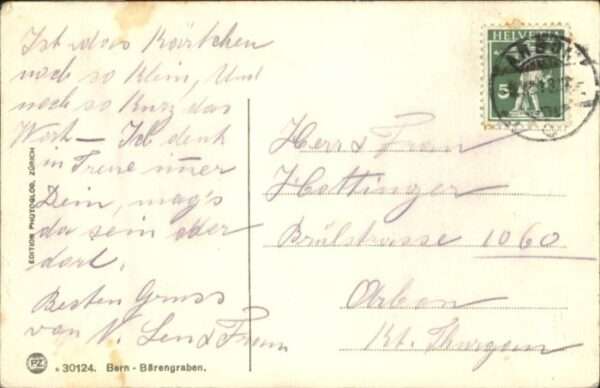 Ist das Kärtchen
noch so klein, Und
noch so Kurz das
Wort — Ich denk
in Treue immer
Dein, mag's
da sein oder
dort.
Besten Gruss
von
HELVETIA
5
ARBON
Herr & Frau
Hottinger
1060
Arbon
Kt. Thurgau
EDITION PHOTOGLOB, ZÜRICH
PZ
30124. Bern - Bärengraben.